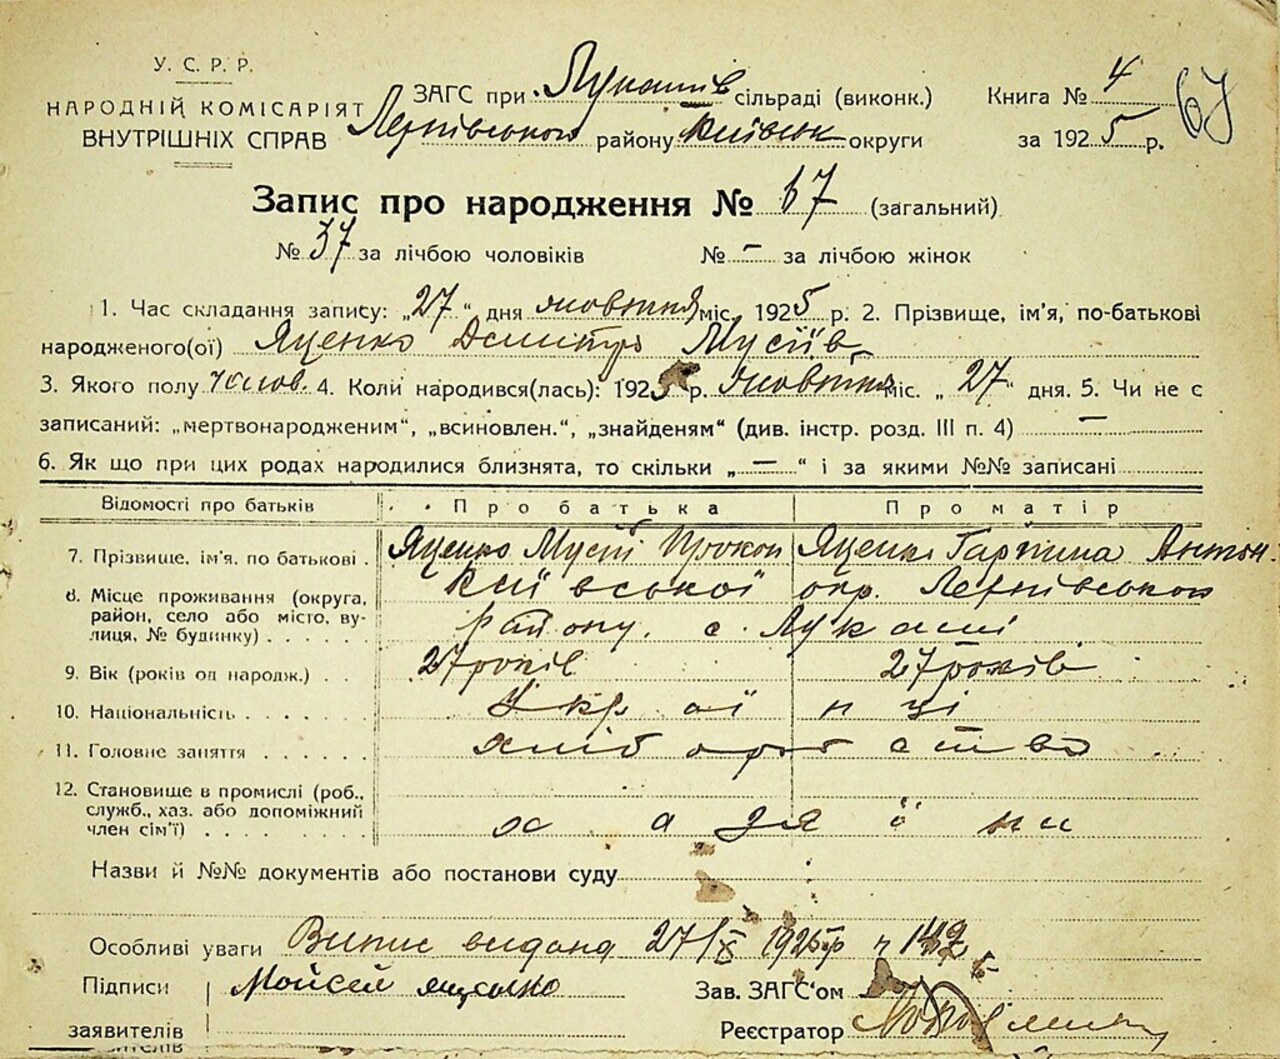 У. С. Р. Р.
НАРОДНІЙ КОМІСАРІЯТ
ВНУТРІШНІХ СПРАВ
ЗАГС при Лукашів сільраді (виконк.)
района району Київськ округи
Книга № 4
за 1925 р.
67
Запис про народження № 67 (загальний)
№ 37 за лічбою чоловіків № – за лічбою жінок
1. Час складання запису: „27“ дня жовтня міс. 1925 р. 2. Прізвище, ім'я, по-батькові
народженого(ої) Яценко Дмитро Мусіїв
3. Якого полу чолов. 4. Коли народився(лась): 1925 р. жовтня міс. „27“ дня. 5. Чи не є
записаний: „мертвонародженим“, „всиновлен.“, „знайденям“ (див. інстр. розд. III п. 4) –
6. Як що при цих родах народилися близнята, то скільки „–“ і за якими №№ записані
Відомості про батьків Про батька Про матір
7. Прізвище, ім'я, по батькові Яценко Мусій Прокоп Яценко Гарпина Антон.
8. Місце проживання (округа, район, село або місто, вулиця, № будинку) Київської окр.
району. с. Лукаші
9. Вік (років од народж.) 27 років 27 років
10. Національність Українці
11. Головне заняття хліборобство
12. Становище в промислі (роб., служб., хаз. або допоміжний член сім'ї) хазяїни
Назви й №№ документів або постанови суду
Особливі уваги Випис видана 27/X 1925 р
Підписи Мойсей яценко
заявителів
Зав. ЗАГС'ом
Реєстратор